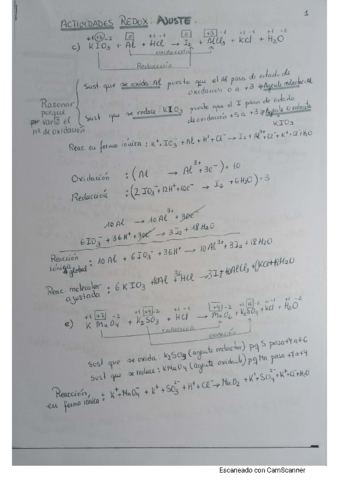 ACTIVIDADES REDOX: AJUSTE. 1
+1 +5 -2 0 +1 -1 0 +3 -1 +1 -1 +1 -2
c) KIO₃ + Al + HCl → I₂ + AlCl₃ + KCl + H₂O
oxidación
Reducción
Sust que se oxida Al puesto que el Al pasa de estado de
oxidación 0 a +3 Agente reductor Al
Razonar
porque
varía el
nº de oxidación
Sust que se reduce: KIO₃ puesto que el I pasa de estado
de oxidación +5 a Agente oxidante
KIO₃
Reac en forma iónica: K⁺ IO₃⁻ + Al + H⁺ + Cl⁻ → I₂ + Al³⁺ + Cl⁻ + K⁺ + Cl⁻ + H₂O
Oxidación: (Al → Al³⁺ + 3e⁻) × 10
Reducción: (2 IO₃⁻ + 12H⁺ + 10e⁻ → I₂ + 6H₂O) × 3
10 Al → 10 Al³⁺ + 30e⁻
6 IO₃⁻ + 36H⁺ + 30e⁻ → 3I₂ + 18H₂O
Reacción
iónica
global: 10 Al + 6 IO₃⁻ + 36H⁺ → 10 Al³⁺ + 3I₂ + 18H₂O
Reac molecular
ajustada: 6 KIO₃ + 10Al + 36HCl → 3I₂ + 10AlCl₃ + 6KCl + 18H₂O
e) K MnO₄ + K₂SO₃ + HCl → MnO₂ + K₂SO₄ + KCl + H₂O
reducción
oxidación
Sust que se oxida: K₂SO₃ (agente reductor) pq S pasa +4 a +6
Sust que se reduce: KMnO₄ (agente oxidante) pq Mn pasa +7 a +4
Reacción
en forma iónica: K⁺ MnO₄⁻ + K⁺ + SO₃²⁻ + H⁺ + Cl⁻ → MnO₂ + K⁺ SO₄²⁻ + K⁺ Cl⁻ + H₂O
Escaneado con CamScanner